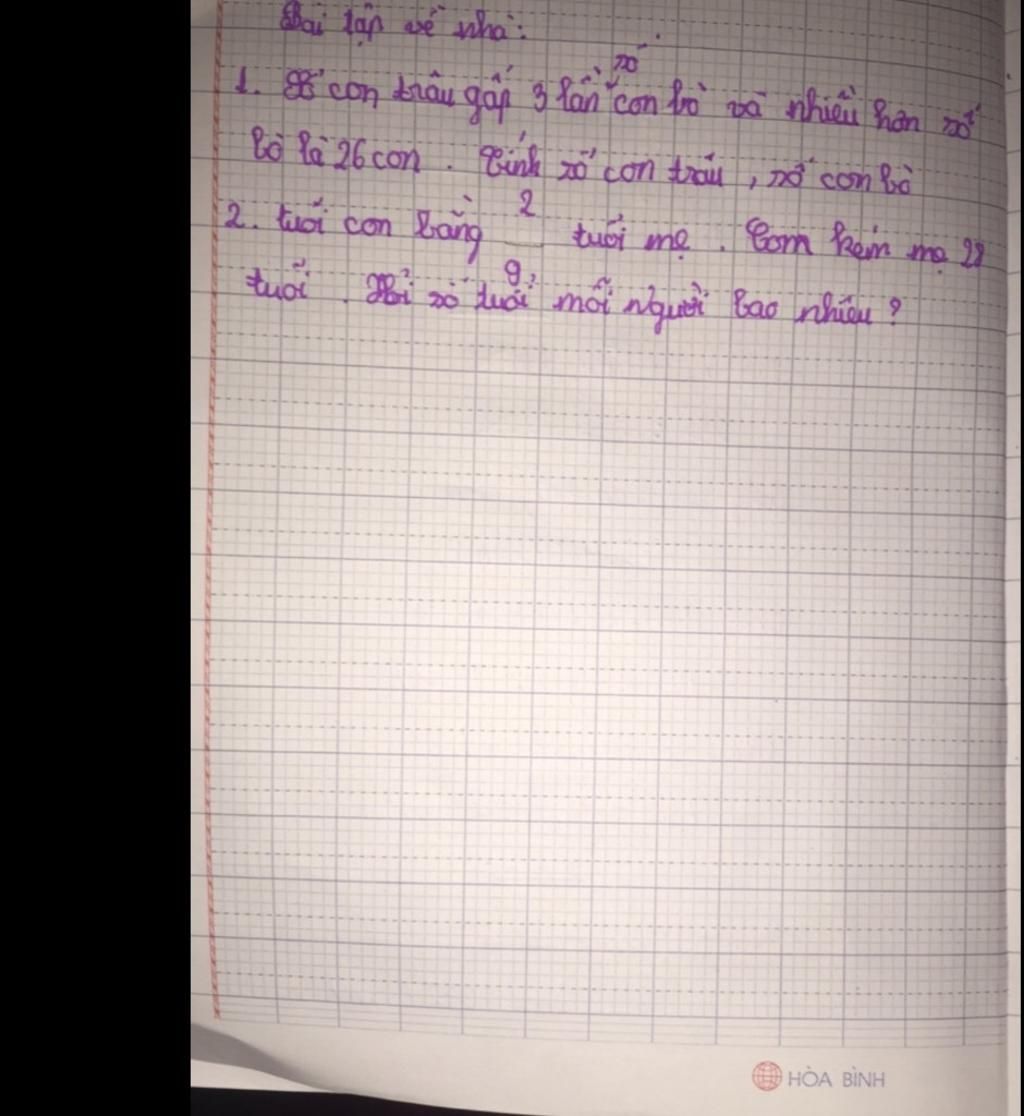 Bài tập về nhà:
1. Số con trâu gấp 3 lần số con bò và nhiều hơn số
bò là 26 con. Tính số con trâu, số con bò
2. tuổi con bằng 2/9 tuổi mẹ. Con kém mẹ 28
tuổi. Hỏi số tuổi mỗi người bao nhiêu?
HÒA BÌNH